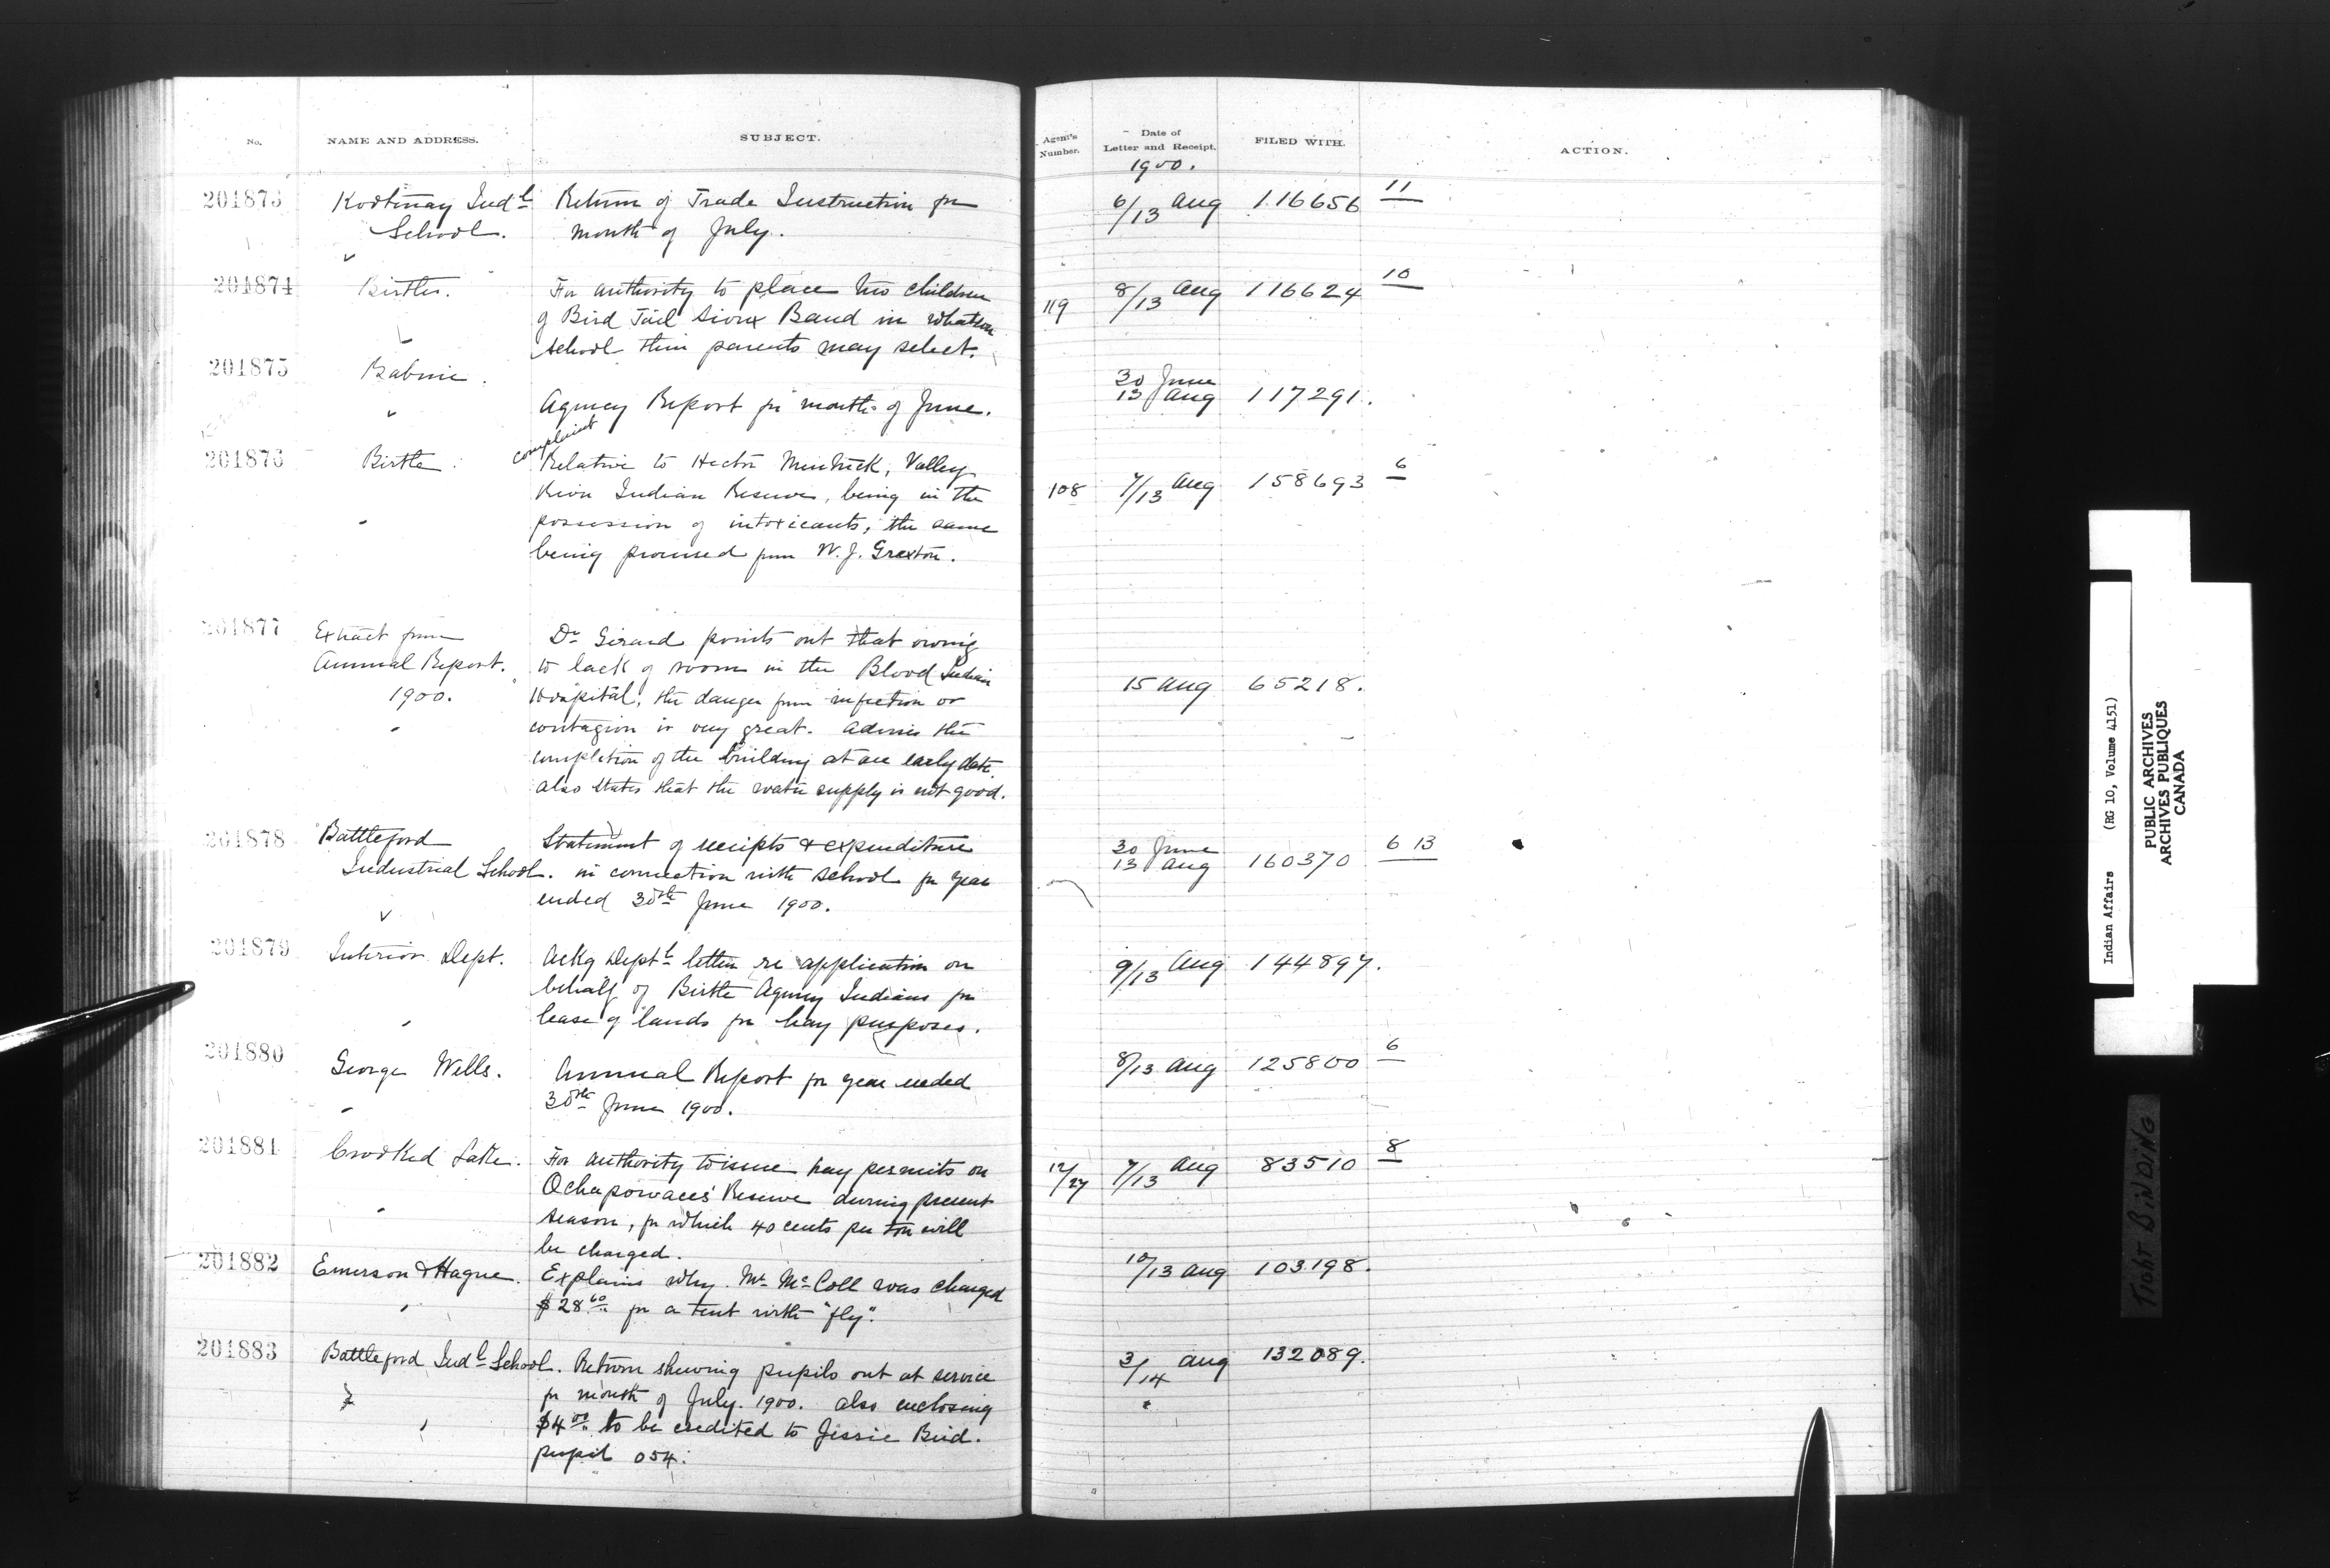 No. NAME AND ADDRESS. SUBJECT. Agent's Number. Date of Letter and Receipt. FILED WITH. ACTION.
1900.
201873 Kootenay Indl Return of Trade Instruction for 6/13 Aug 116656 11
School. month of July.
201874 Birtle. For authority to place two children 119 8/13 Aug 116624 10
of Bird Tail Sioux Band in whatsoe
school their parents may select.
201875 Babine. 30 June
Agency Report for month of June. 13 Aug 117291.
complaint
201876 Birtle. Relative to Hector Valley 108 7/13 Aug 158693 6
River Indian Reserve, being in the
possession of intoxicants, the same
being procured from W. J. Grexton.
201877 Extract from Dr Girard points out that owing
Annual Report. to lack of room in the Blood Indian 15 Aug 65218.
1900. Hospital, the danger from infection or
contagion is very great. Advises the
completion of the building at an early date
also states that the water supply is not good.
201878 Battleford Statement of receipts & expenditure 30 June 6 13
Industrial School. in connection with school for year 13 Aug 160370
ended 30th June 1900.
201879 Interior Dept. Ackg Deptl letter re application on 9/13 Aug 144897.
behalf of Birtle Agency Indians for
lease of lands for hay purposes.
201880 George Wells. Annual Report for year ended 8/13 Aug 125800 6
30th June 1900.
201881 Crooked Lake. For authority to issue hay permits on 12/27 7/13 Aug 83510 8
Ochapowace's Reserve during present
season, for which 40 cents per ton will
be charged.
201882 Emerson & Hague. Explains why Mr McColl was charged 10/13 Aug 103198.
$28.60 for a tent with "fly".
201883 Battleford Indl School. Return shewing pupils out at service 3/14 Aug 132089.
for month of July. 1900. also enclosing
$4.00 to be credited to Jessie Bird.
pupil 054.
Indian Affairs (RG 10, Volume 4151)
PUBLIC ARCHIVES
ARCHIVES PUBLIQUES
CANADA
TIGHT BINDING